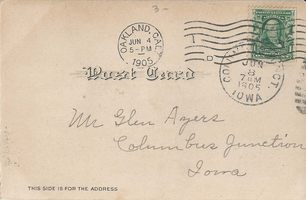 3-
OAKLAND, CAL.
JUN 4
5-PM
1905
D
COLUMBUS JUNCT.
JUN
8
7AM
1905
IOWA
Post Card
Mr Glen Ayers
Columbus Junction
Iowa
THIS SIDE IS FOR THE ADDRESS